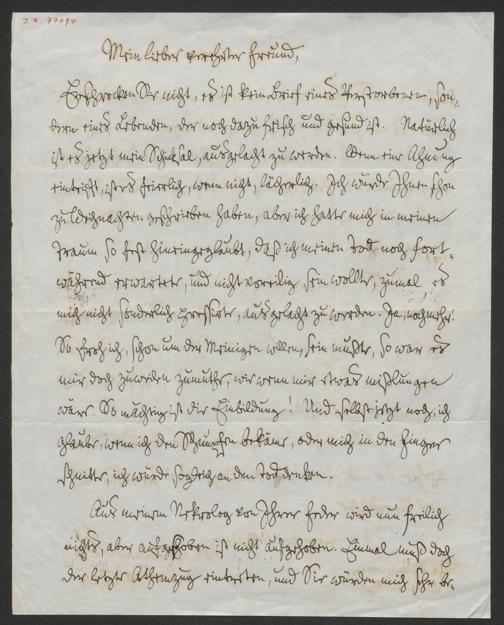 J. N. 77094
Mein lieber verehrter Freund,
Erschrecken Sie nicht, es ist kein Brief eines Verstorbenen, son-
dern eines Lebenden, der noch dazu frisch und gesund ist. Natürlich
ist es jetzt mein Schicksal, ausgelacht zu werden. Wenn eine Ahnung
eintrifft, ist es feierlich, wenn nicht, lächerlich. Ich würde Ihnen schon
zu Weihnachten geschrieben haben, aber ich hatte mich in meinen
Traum so fest hineingeglaubt, daß ich meinen Tod noch fort-
während erwartete, und nicht voreilig sein wollte, zumal es
mich nicht sonderlich pressirte, ausgelacht zu werden. Ja, noch mehr.
So froh ich, schon um der Meinigen willen, sein mußte, so war es
mir doch zuweilen zumuthe, wie wenn mir etwas mißlungen
wäre. So mächtig ist die Einbildung! Und selbst jetzt noch, ich
glaube, wenn ich den Schnupfen bekäme, oder mich in den Finger
schnitte, ich würde sogleich an den Tod denken.
Aus meinem Nekrolog von Ihrer Feder wird nun freilich
nichts, aber aufgeschoben ist nicht aufgehoben. Einmal muß doch
der letzte Athemzug eintreten, und Sie würden mich sehr be-